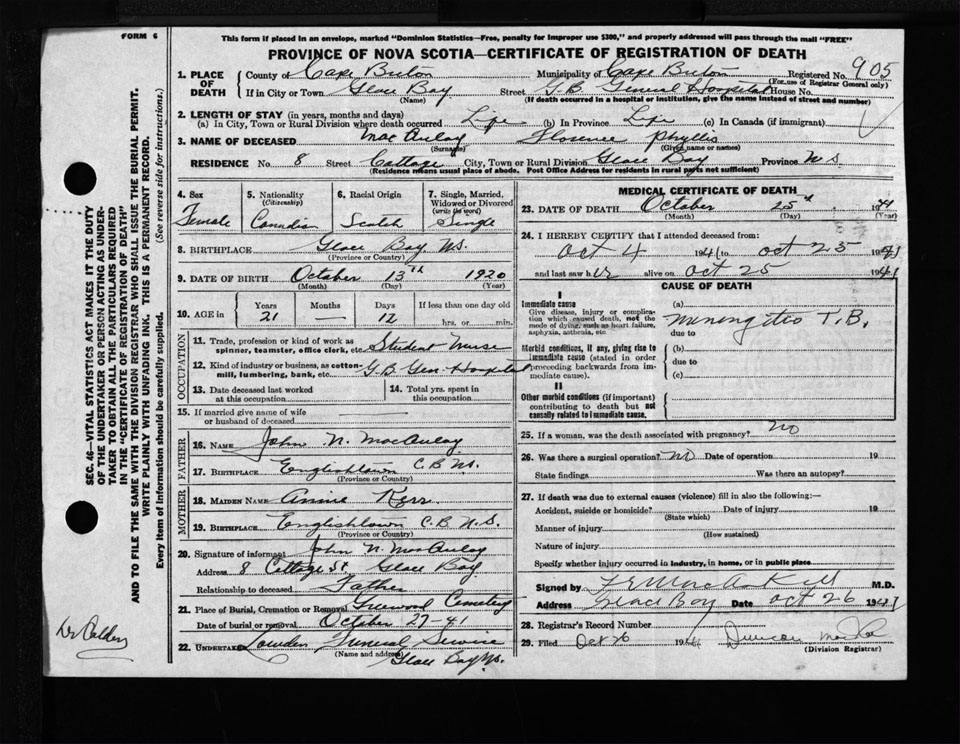 FORM 6
This form if placed in an envelope, marked "Dominion Statistics—Free, penalty for improper use $300," and properly addressed will pass through the mail "FREE"
PROVINCE OF NOVA SCOTIA—CERTIFICATE OF REGISTRATION OF DEATH
SEC. 46—VITAL STATISTICS ACT MAKES IT THE DUTY
OF THE UNDERTAKER OR PERSON ACTING AS UNDER-
TAKER TO OBTAIN ALL THE PARTICULARS REQUIRED
IN THE "CERTIFICATE OF REGISTRATION OF DEATH"
AND TO FILE THE SAME WITH THE DIVISION REGISTRAR WHO SHALL ISSUE THE BURIAL PERMIT.
WRITE PLAINLY WITH UNFADING INK. THIS IS A PERMANENT RECORD.
Every item of Information should be carefully supplied. (See reverse side for instructions.)
1. PLACE OF DEATH
County of Cape Breton Municipality of Cape Breton Registered No. 905
(For use of Registrar General only)
If in City or Town Glace Bay Street G.B. General Hospital House No.
(Name) (If death occurred in a hospital or institution, give the name instead of street and number)
2. LENGTH OF STAY (in years, months and days)
(a) In City, Town or Rural Division where death occurred Life (b) In Province Life (c) In Canada (if immigrant)
3. NAME OF DECEASED MacAulay Florence Phyllis
(Surname) (Given name or names)
RESIDENCE No. 8 Street Cottage City, Town or Rural Division Glace Bay Province N.S
(Residence means usual place of abode. Post Office Address for residents in rural parts not sufficient)
4. Sex Female
5. Nationality (Citizenship) Canadian
6. Racial Origin Scotch
7. Single, Married, Widowed or Divorced (write the word) Single
8. BIRTHPLACE Glace Bay N.S.
(Province or Country)
9. DATE OF BIRTH October 13th 1920
(Month) (Day) (Year)
10. AGE in Years 21 Months — Days 12 If less than one day old hrs. or min.
OCCUPATION
11. Trade, profession or kind of work as spinner, teamster, office clerk, etc. Student Nurse
12. Kind of industry or business, as cotton-mill, lumbering, bank, etc. G.B. Gen Hospital
13. Date deceased last worked at this occupation
14. Total yrs. spent in this occupation
15. If married give name of wife or husband of deceased
FATHER
16. Name John N. MacAulay
17. BIRTHPLACE Englishtown C.B N.S.
(Province or Country)
MOTHER
18. MAIDEN NAME Annie Kerr
19. BIRTHPLACE Englishtown C.B N.S.
(Province or Country)
20. Signature of informant John N. MacAulay
Address 8 Cottage St. Glace Bay
Relationship to deceased Father
21. Place of Burial, Cremation or Removal Cemetery
Date of burial or removal October 27-41
22. UNDERTAKER Funeral Service
(Name and address) Glace Bay N.S.
MEDICAL CERTIFICATE OF DEATH
23. DATE OF DEATH October 25th 1941
(Month) (Day) (Year)
24. I HEREBY CERTIFY that I attended deceased from:
Oct 4 1941 to Oct 25 1941
and last saw her alive on Oct 25 1941
CAUSE OF DEATH
I
Immediate cause
Give disease, injury or complication which caused death, not the mode of dying, such as heart failure, asphyxia, asthenia, etc.
(a) Meningitis T.B.
due to
Morbid conditions, if any, giving rise to immediate cause (stated in order proceeding backwards from immediate cause).
(b)
due to
(c)
II
Other morbid conditions (if important) contributing to death but not causally related to immediate cause.
25. If a woman, was the death associated with pregnancy? NO
26. Was there a surgical operation? NO Date of operation 19
State findings Was there an autopsy?
27. If death was due to external causes (violence) fill in also the following:—
Accident, suicide or homicide? Date of injury 19
(State which)
Manner of injury
(How sustained)
Nature of injury
Specify whether injury occurred in industry, in home, or in public place
Signed by M.D.
Address Glace Bay Date Oct 26 1941
28. Registrar's Record Number
29. Filed Oct 26 1941 Duncan
(Division Registrar)